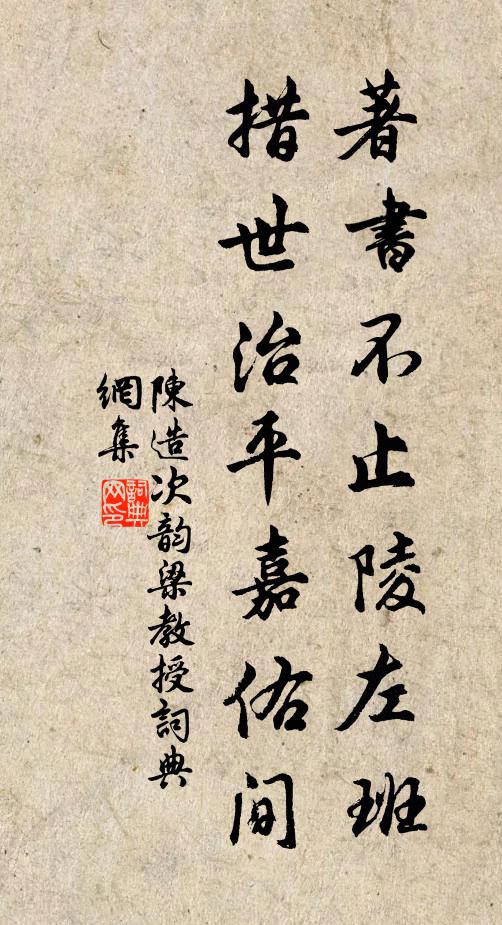 著書不止陵左班
措世治平嘉佑間
陳造次韵梁教授詞典
網集
詞典
网印